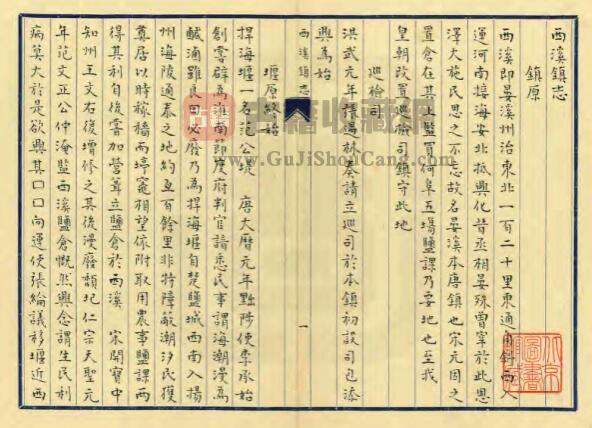 西溪鎮志
鎮原
西溪即晏溪州治東北一百二十里東通角斜西入
運河南接海安北抵興化昔丞相晏殊曾宰於此恩
澤大施民思之不忘故名晏溪本唐鎮也宋元因之
置倉在其上監買何阜五場鹽課乃要地也至我
皇朝改置巡檢司鎮守此地
巡檢司
洪武元年 奏請立巡司於本鎮初設司
興為始
西溪鎮志
一
堰原
捍海堰一名范公堤 唐大曆元年黜陟使李承始
創 為淮南節度府判官請悉民事謂海潮漫為
鹹滷雖良田必廢乃為捍海堰自楚鹽城西南入揚
州海陵通泰之地約亙百餘里非特障蔽潮汐民獲
奠居以時稼穡而竈相望依附取用農事鹽課兩
得其利自後嘗加營葺立鹽倉於西溪 宋開寶中
知州王文右復增修之其後漫廢頹圮仁宗天聖元
年范文正公仲淹監西溪鹽倉慨然興念謂生民利
病莫大於是欲興其口口向運使張綸議移堰近西
古籍收藏网
www.GuJiShouCang.com